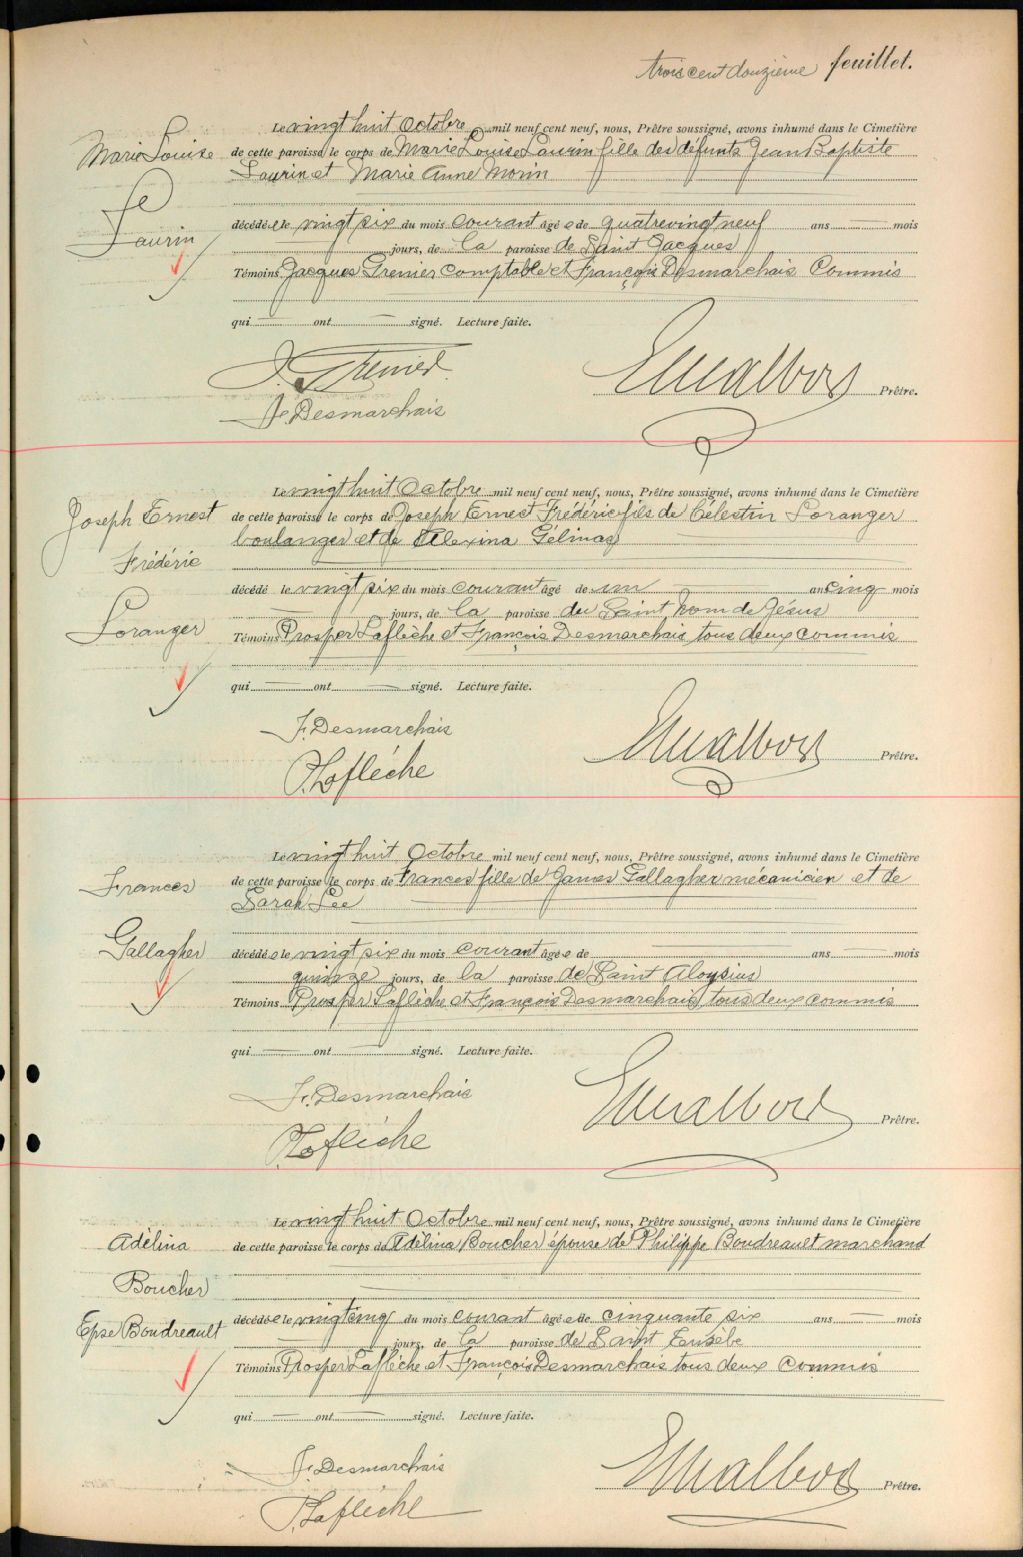 trois cent douzième feuillet.
Le vingt huit Octobre mil neuf cent neuf, nous, Prêtre soussigné, avons inhumé dans le Cimetière
Marie Louise
de cette paroisse le corps de Marie Louise Laurin fille des défunts Jean Baptiste
Laurin et Marie Anne Morin
Laurin
décédée le vingt six du mois courant âgée de quatrevingt neuf ans mois
jours, de la paroisse de Saint Jacques
Témoins Jacques Grenier comptable et François Desmarchais Commis
qui ont signé. Lecture faite.
J. Grenier
Prêtre.
F. Desmarchais
Le vingt huit Octobre mil neuf cent neuf, nous, Prêtre soussigné, avons inhumé dans le Cimetière
Joseph Ernest
de cette paroisse le corps de Joseph Ernest Frédéric fils de Célestin Loranger
boulanger et de Alexina Gélinas
Frédéric
décédé le vingt six du mois courant âgé de un an cinq mois
jours, de la paroisse du Saint Nom de Jésus
Loranger
Témoins Prosper Laflèche et François Desmarchais tous deux commis
qui ont signé. Lecture faite.
F. Desmarchais
Prêtre.
P. Laflèche
Le vingt huit Octobre mil neuf cent neuf, nous, Prêtre soussigné, avons inhumé dans le Cimetière
Frances
de cette paroisse le corps de Frances fille de James Gallagher mécanicien et de
Sarah Lee
Gallagher
décédée le vingt six du mois courant âgée de ans mois
quinze jours, de la paroisse de Saint Aloysius
Témoins Prosper Laflèche et François Desmarchais tous deux commis
qui ont signé. Lecture faite.
F. Desmarchais
Prêtre.
P. Laflèche
Le vingt huit Octobre mil neuf cent neuf, nous, Prêtre soussigné, avons inhumé dans le Cimetière
Adélina
de cette paroisse le corps de Adélina Boucher épouse de Philippe Boudreault marchand
Boucher
décédée le vingt cinq du mois courant âgée de cinquante six ans mois
Epse Boudreault
jours, de la paroisse de Saint Eusèbe
Témoins Prosper Laflèche et François Desmarchais tous deux commis
qui ont signé. Lecture faite.
F. Desmarchais
Prêtre.
P. Laflèche